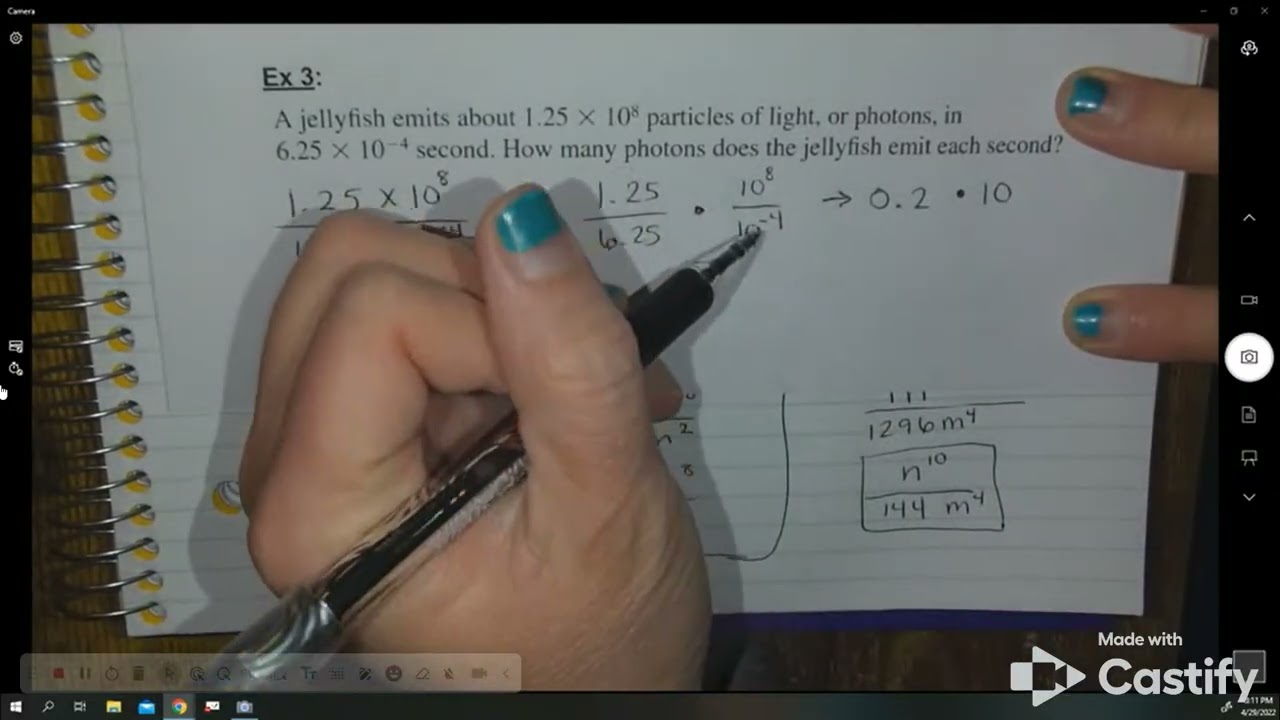 Camera
Ex 3:
A jellyfish emits about 1.25 × 10⁸ particles of light, or photons, in
6.25 × 10⁻⁴ second. How many photons does the jellyfish emit each second?
1.25 x 10⁸
1.25 • 10⁸ → 0.2 • 10
6.25 10⁻⁴
1296m⁴
n¹⁰
144 m⁴
Made with
Castify
4/29/2022